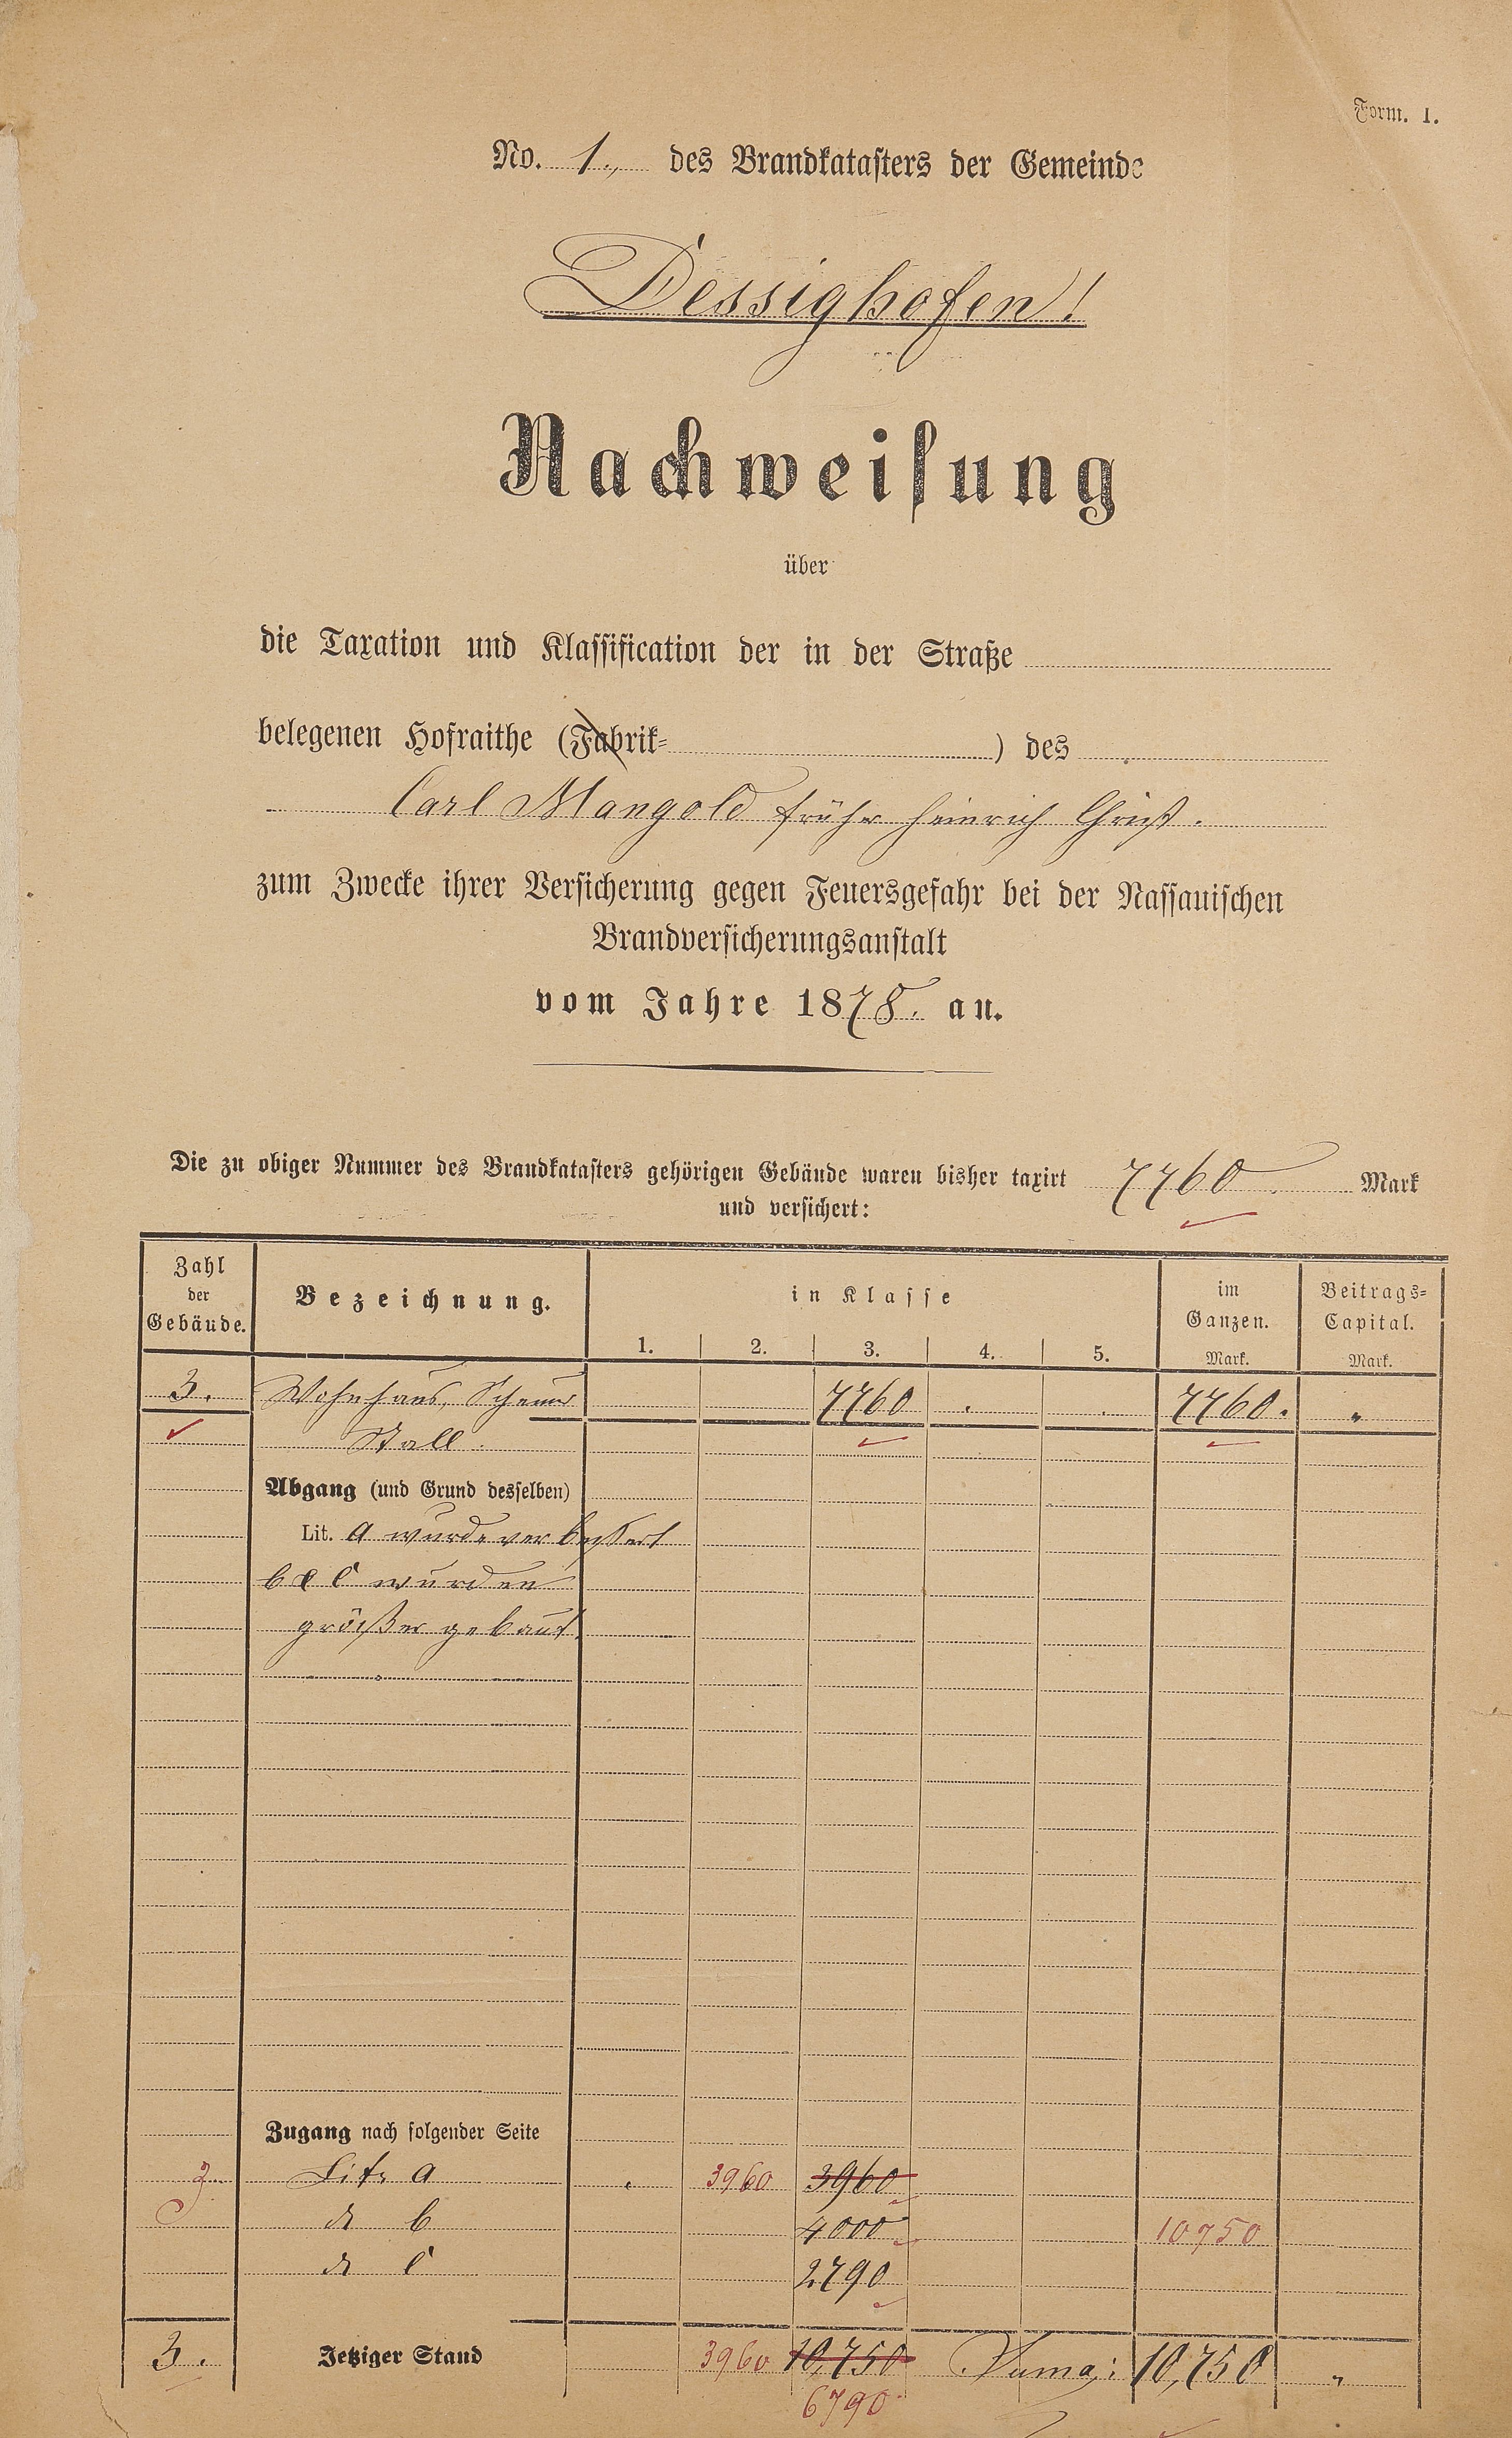 Form. 1.
No. 1., des Brandkatasters der Gemeinde
Dessighofen!
Nachweisung
über
die Taxation und Klassification der in der Straße
belegenen Hofraithe (Fabrik= ) des
Carl Mangold früher Heinrich Christ.
zum Zwecke ihrer Versicherung gegen Feuersgefahr bei der Nassauischen
Brandversicherungsanstalt
vom Jahre 1878. an.
Die zu obiger Nummer des Brandkatasters gehörigen Gebäude waren bisher taxirt 7760. Mark
und versichert:
Zahl der Gebäude. Bezeichnung. in Klasse im Ganzen. Beitrags=Capital.
1. 2. 3. 4. 5. Mark. Mark.
3. Wohnhaus, Scheuer 7760 . . 7760. "
Stall.
Abgang (und Grund desselben)
Lit. a wurde verbessert
b & c wurden
größer gebaut.
Zugang nach folgender Seite
3 Litr a " 3960 3960
do b 4000 10750
do c 2790
3. Jetziger Stand 3960 10,750 Suma: 10,750 "
6790